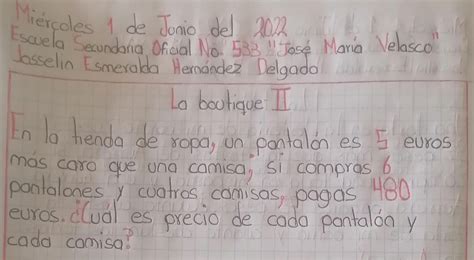 Miércoles 1 de Junio del 2022
Escuela Secundaria Oficial No. 533 "José María Velasco"
Josselin Esmeralda Hernández Delgado
La boutique II
En la tienda de ropa, un pantalón es 5 euros
más caro que una camisa; si compras 6
pantalones y cuatros camisas, pagas 480
euros. ¿Cuál es precio de cada pantalón y
cada camisa?